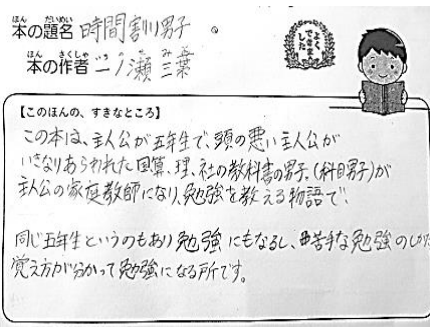 本の題名 時間割り男子。
ほん だいめい
よくできました
本の作者 一ノ瀬三葉
ほん さくしゃ いち の せ み よ
【このほんの、すきなところ】
この本は、主人公が五年生で、頭の悪い主人公が
いきなりあらわれた国、算、理、社の教科書の男子、(科目男子)が
主人公の家庭教師になり、勉強を教える物語で、
同じ五年生というのもあり勉強にもなるし、苦手な勉強のしかた
覚え方が分かって勉強になる所です。